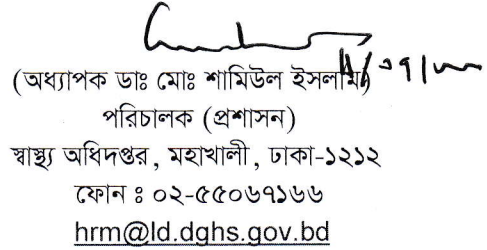 (অধ্যাপক ডাঃ মোঃ শামিউল ইসলাম)
পরিচালক (প্রশাসন)
স্বাস্থ্য অধিদপ্তর, মহাখালী, ঢাকা-১২১২
ফোন ঃ ০২-৫৫০৬৭১৬৬
hrm@ld.dghs.gov.bd